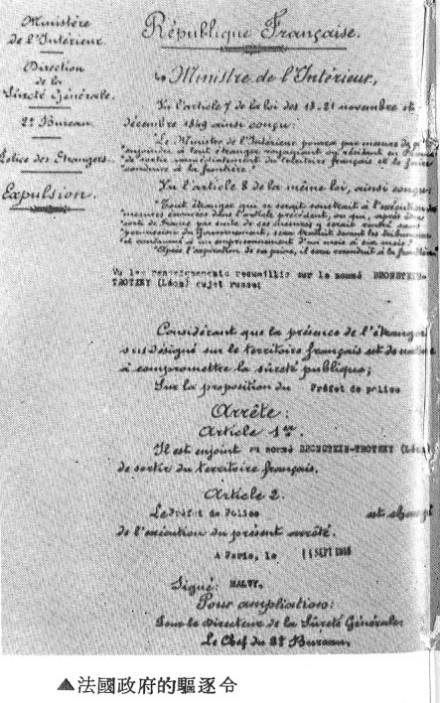 Ministère
de l'Intérieur.
Direction
de la
Sûreté Générale.
2e Bureau.
Police des Etrangers.
Expulsion.
République Française.
Le Ministre de l'Intérieur,
Vu l'article 7 de la loi des 13-21 novembre et
décembre 1849 ainsi conçu:
"Le Ministre de l'Intérieur pourra par mesure de
enjoindre à tout étranger voyageant ou résidant en France
de sortir immédiatement du territoire français et le faire
conduire à la frontière."
Vu l'article 8 de la même loi, ainsi conçu
"Tout étranger qui se serait soustrait à l'exécution des
mesures énoncées dans l'article précédent, ou qui, après être
sorti de France par suite de ces mesures y serait rentré sans
permission du Gouvernement, sera traduit devant les tribunaux
et condamné à un emprisonnement d'un mois à six mois.
"Après l'expiration de sa peine, il sera conduit à la frontière
Vu les renseignements recueillis sur le nommé BRONSTEIN-
TROTZKY (Léon) sujet russe;
Considérant que la présence de l'étranger
susdésigné sur le territoire français est de nature
à compromettre la sûreté publique;
Sur la proposition du Préfet de police
Arrête:
Article 1er.
Il est enjoint au nommé BRONSTEIN-TROTZKY (Léon)
de sortir du territoire français.
Article 2.
Le Préfet de Police est chargé
de l'exécution du présent arrêté.
A Paris, le SEPT
Signé: MALVY.
Pour ampliation:
Sous le Directeur de la Sûreté Générale
Le Chef du 2e Bureau,
▲法國政府的驅逐令